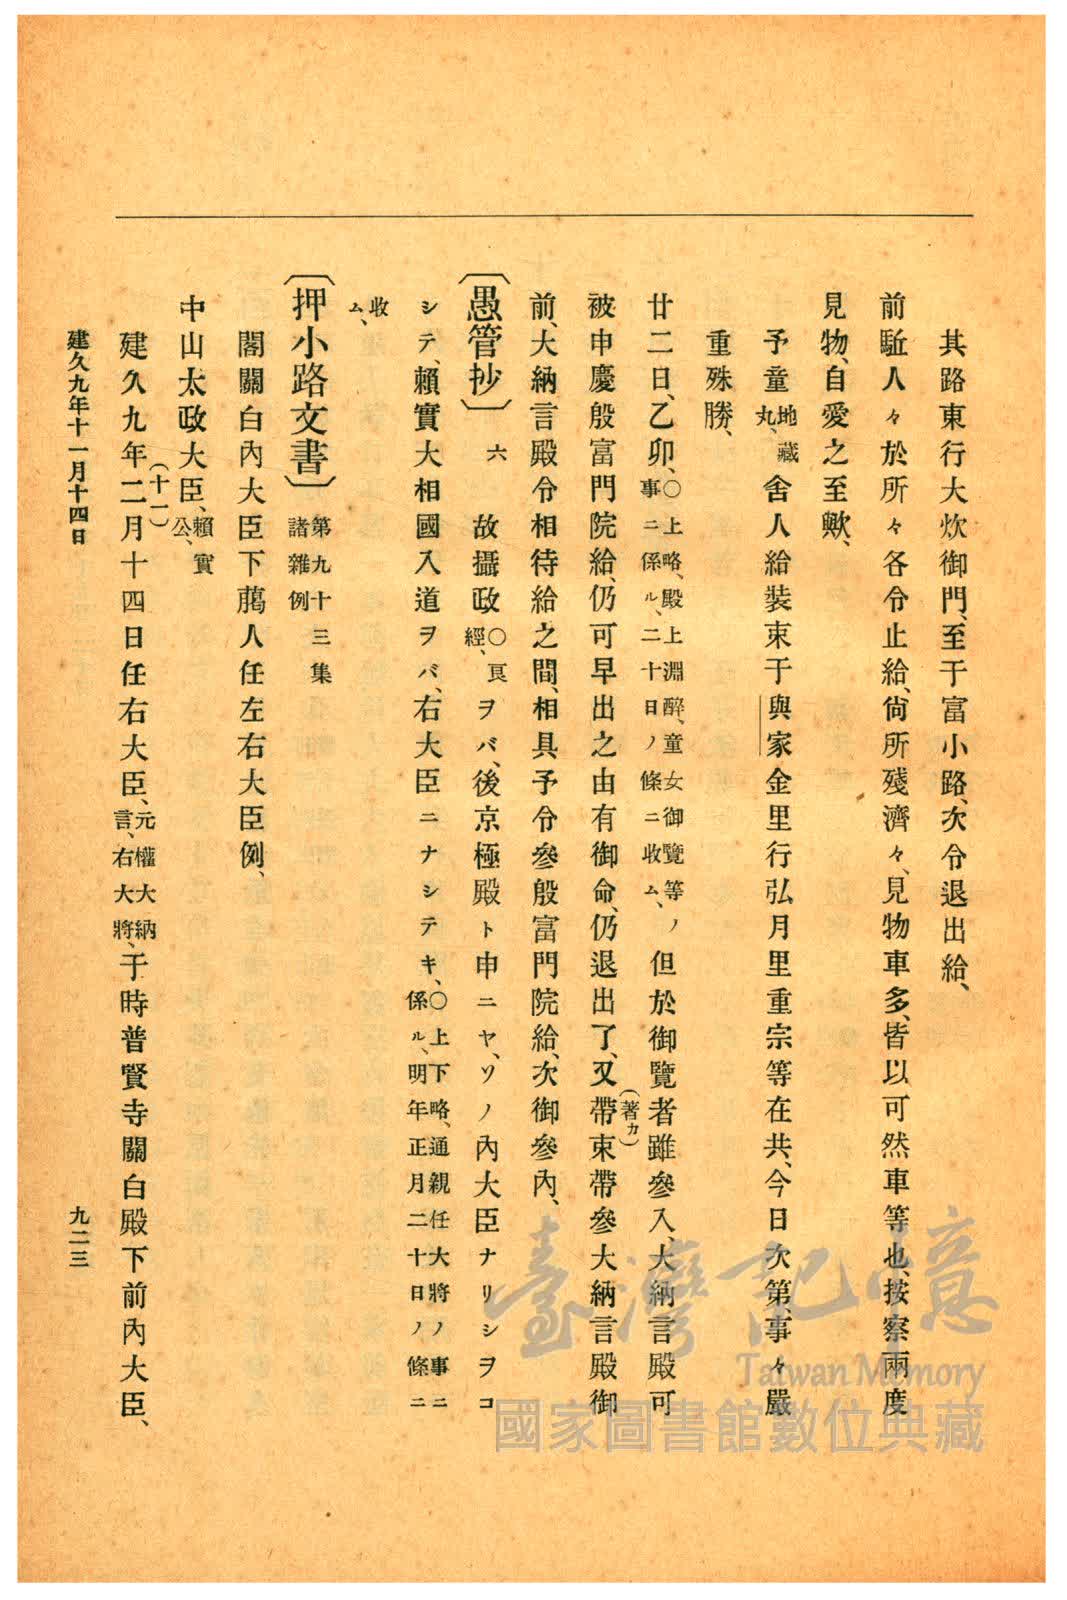 其路東行大炊御門、至于富小路、次令退出給、
前駈人々於所々各令止給、尙所殘濟々、見物車多、皆以可然車等也、按察兩度
見物、自愛之至歟、
予童地藏丸、舍人給裝束于與家金里行弘月里重宗等在共、今日次第、事々嚴
重殊勝、
廿二日、乙卯、○上略、殿上淵醉、童女御覽等ノ事ニ係ル、二十日ノ條ニ收ム、但於御覽者雖參入、大納言殿可
被申慶殷富門院給、仍可早出之由有御命、仍退出了、又帶(著カ)束帶參大納言殿御
前、大納言殿令相待給之間、相具予令參殷富門院給、次御參內、
〔愚管抄〕 六 故攝政○良經、ヲバ、後京極殿ト申ニヤ、ソノ內大臣ナリシヲコ
シテ、賴實大相國入道ヲバ、右大臣ニナシテキ、○上下略、通親任大將ノ事ニ係ル、明年正月二十日ノ條ニ
收ム、
〔押小路文書〕 第九十三集 諸雜例
閣關白內大臣下﨟人任左右大臣例、
中山太政大臣、賴實公、
建久九年二(十一)月十四日任右大臣、元權大納言、右大將、于時普賢寺關白殿下前內大臣、
建久九年十一月十四日
九二三
臺灣記憶
Taiwan Memory
國家圖書館數位典藏